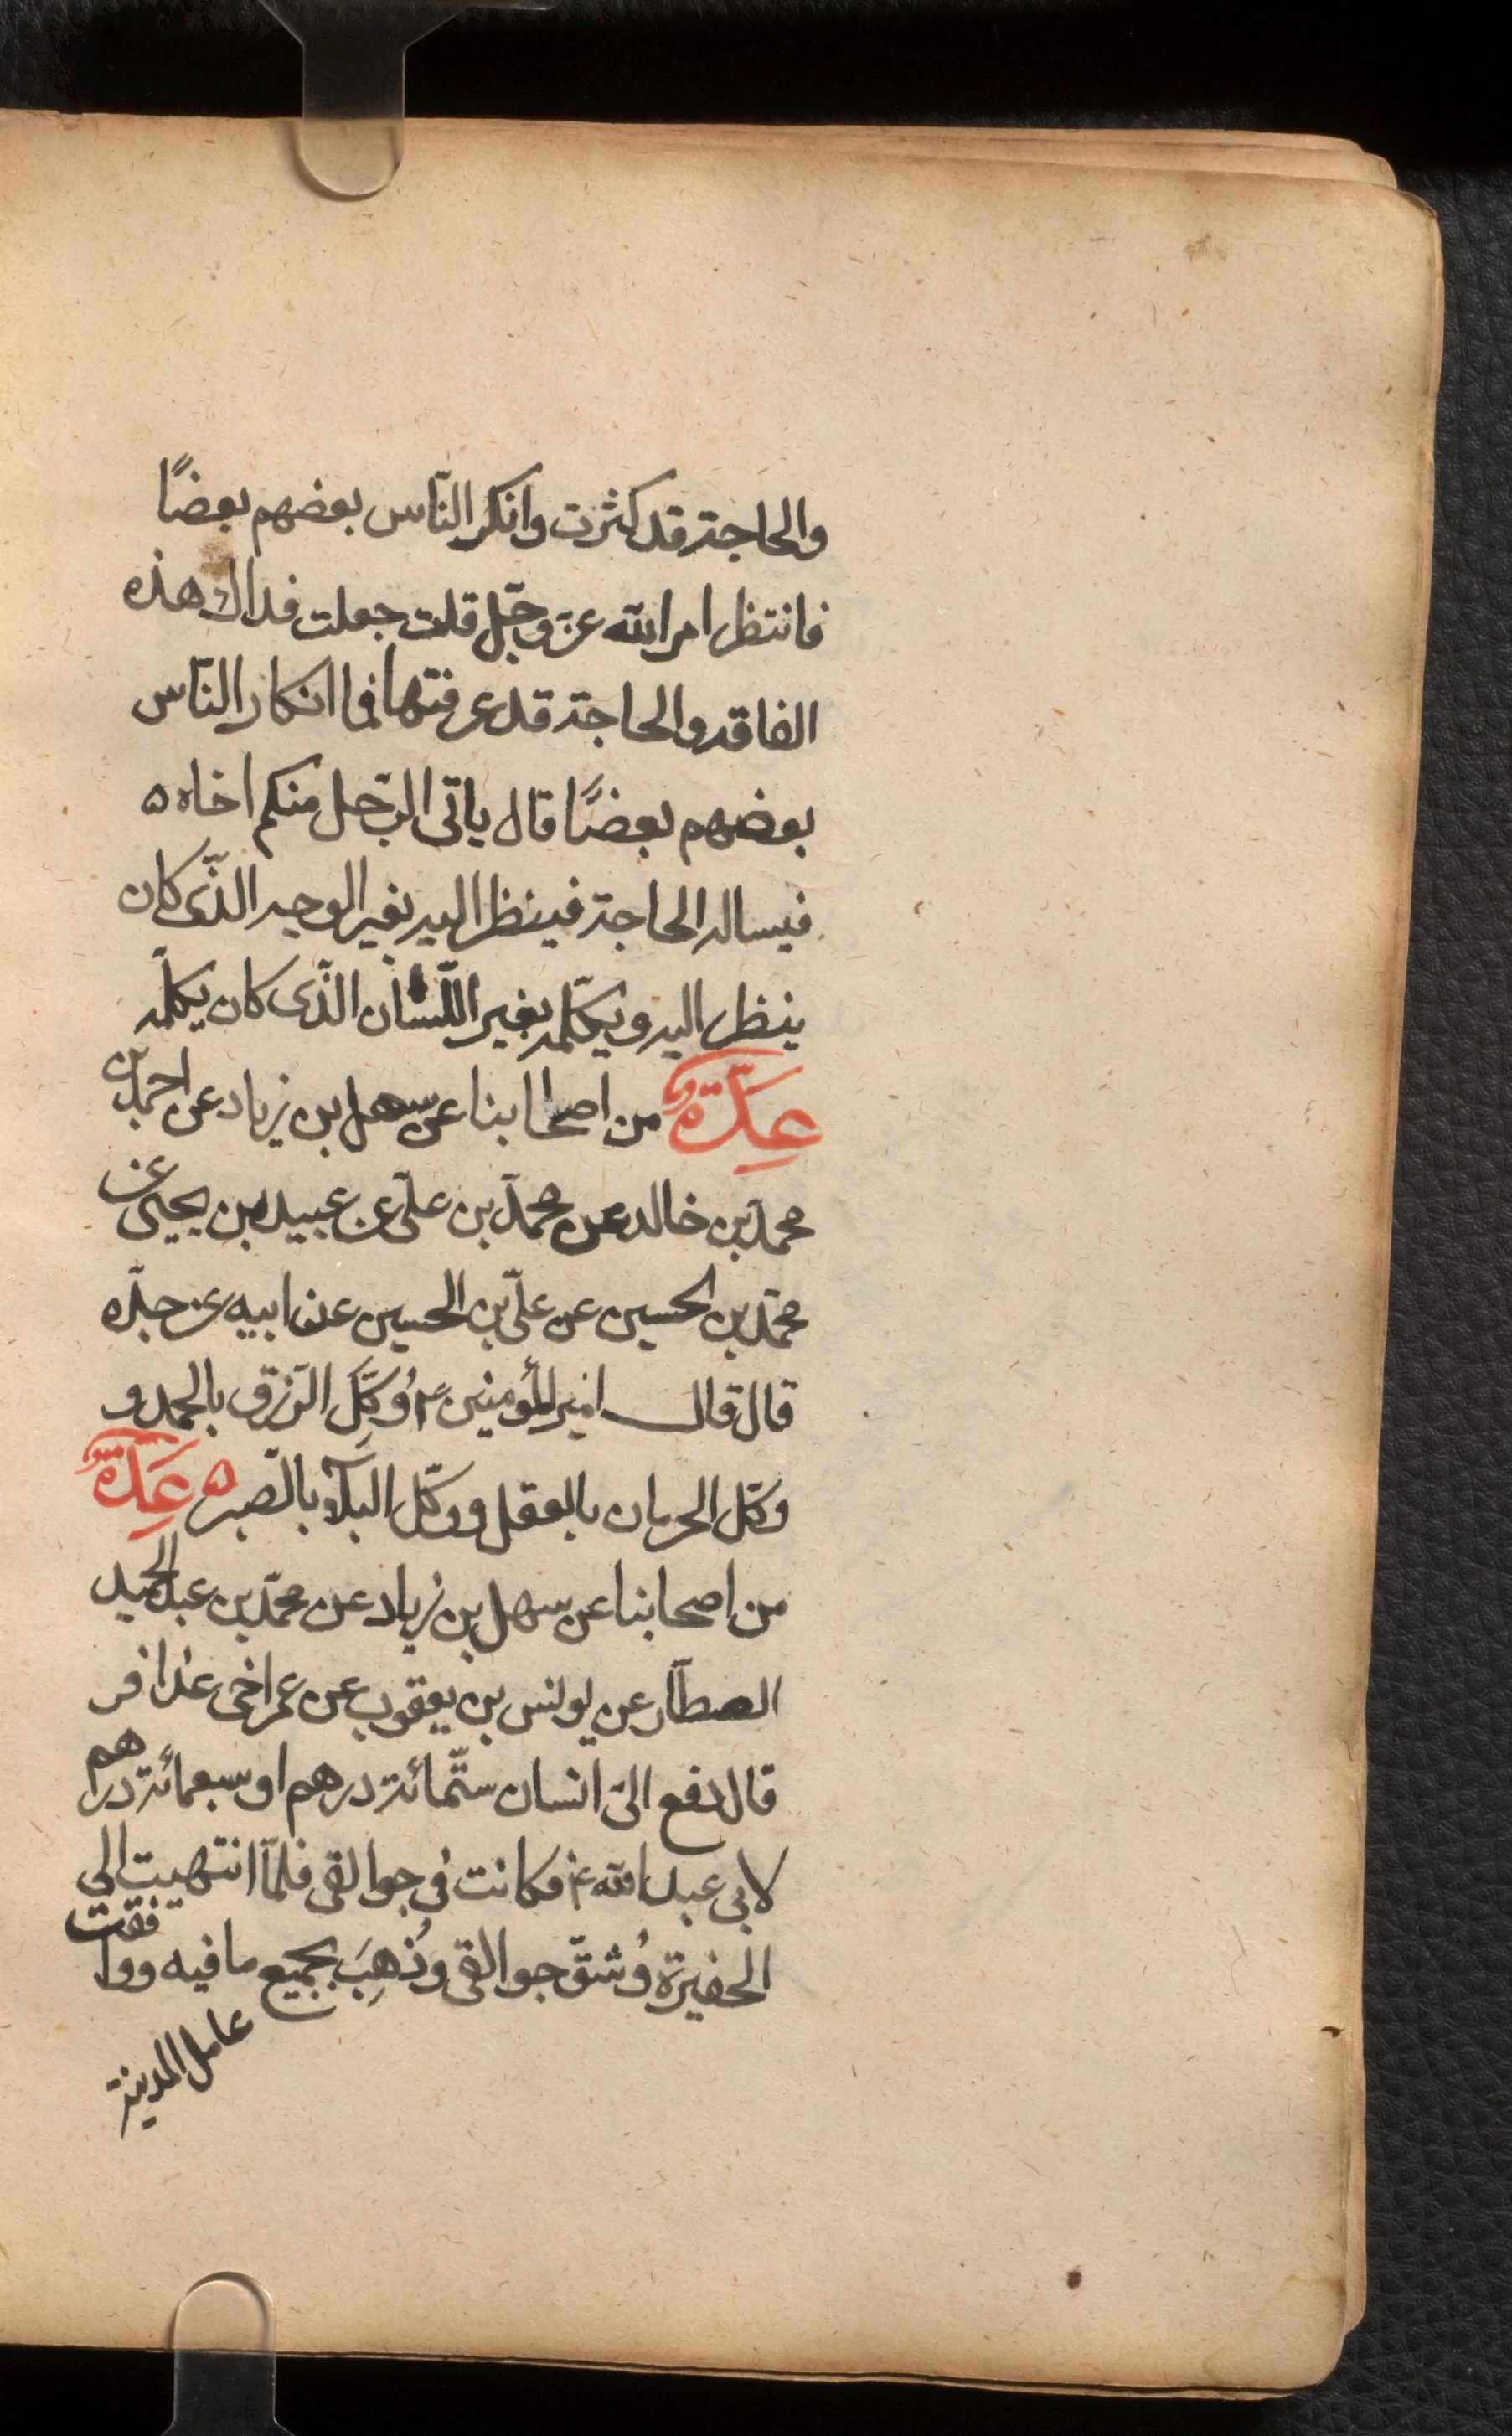 والحاجة قد كثرت وانكر النّاس بعضهم بعضًا
فانتظر امر الله عزّ وجّل قلت جعلت فداك هذه
الفاقه والحاجة قد عرفتها فما انكار النّاس
بعضهم بعضًا قال ياتى الرّجل منكم اخاه ه
فيساله الحاجة فينظر اليه بغير الوجه الذّى كان
ينظر اليه ويكلّمه بغير اللّسان الذّى كان يكلّمه
عِدّةٌ من اصحابنا عن سهل بن زياد عن احمد بن
محمد بن خالد عن محمّد بن علىّ عن عبيد بن يحيى عن
محمّد بن الحسين عن علىّ بن الحسين عن ابيه عن جدّه
قال قال امير المؤمنين ع وُكِّلَ الرّزق بالحمد و
وكّل الحرمان بالعقل ووكّل البلآء بالصّبر ه عِدّةٌ
من اصحابنا عن سهل بن زياد عن محمّد بن عبد الحميد
العطّار عن يونس بن يعقوب عن عمر اخى عذافر
قال دفع الىّ انسان ستّمائة درهم او سبعمائة دراهم
لابى عبد الله ع فكانت فى جوالقى فلمّا انتهيت الى
الحفيرة وُشقّ جوالقى وذُهِبَ بجميع ما فيه ووافقت
عامل المدينة